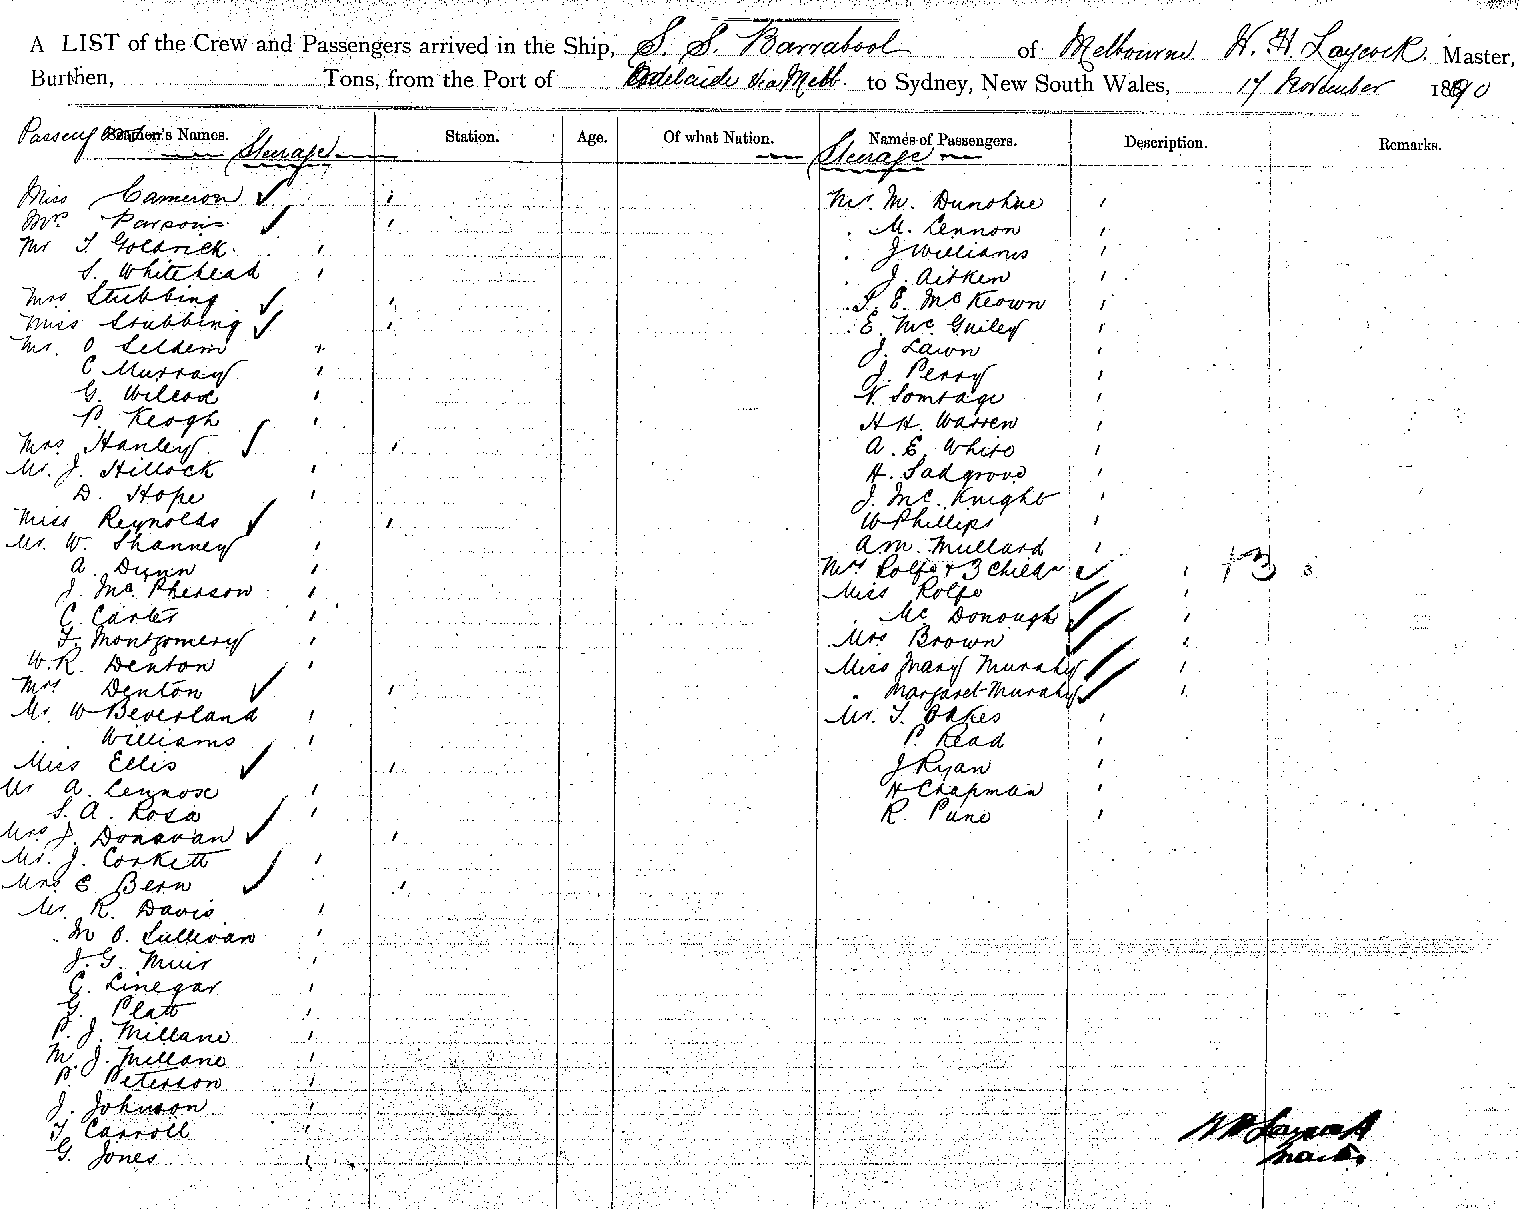 A LIST of the Crew and Passengers arrived in the Ship, S. S. Barrabool of Melbourne W. H. Laycock. Master,
Burthen, Tons, from the Port of Adelaide via Melb. to Sydney, New South Wales, 17 November 1890
Passengers Seamen's Names. Station. Age. Of what Nation. Names of Passengers. Description. Remarks.
Steerage
Miss Cameron
Mrs Parsons
Mr T Goldrick
S. Whitehead
Mrs Stubbing
Miss Stubbing
Mr. O Seldem
C Murray
G. Wilcox
P. Keogh
Mrs Hanley
Mr. J. Hillock
D. Hope
Miss Reynolds
Mr. W. Shanney
A. Dunn
J. McPherson
C. Carter
F. Montgomery
W. R. Denton
Mrs Denton
Mr. W Beverland
Williams
Miss Ellis
Mr A. Lennox
S. A. Rosa
Mrs J. Donavan
Mr. J. Corkett
Mrs E Bern
Mr. R. Davis
M O. Sullivan
J. G. Muir
C. Linegar
G. Platt
P. J. Millane
M. J. Millane
P. Peterson
J. Johnson
T Carroll
G. Jones
Steerage
Mr. M. Dunohue
M. Lennon
J Williams
J. Aitken
S. E. McKeown
E. Mc Guiley
J. Lawn
J. Perry
N. Somrage
H H. Warren
A. E. White
H. Sadgrove
J. McKnight
W Phillips
A M. Mullard
Mrs Rolfe & 3 Childn 1 3 3
Miss Rolfe
Mc Donough
Mrs Brown
Miss Mary Murahy
Margaret Murahy
Mr. T. Oakes
P. Read
J Ryan
H Chapman
R. Pune
W H Laycock
Master